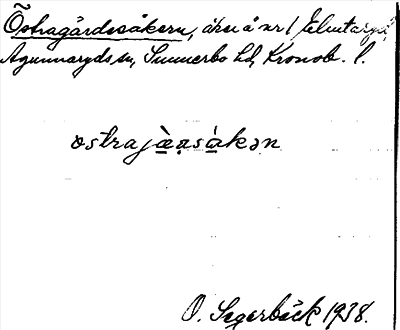 Östragårdsåkern, åker å nr 1 Elmtaryd,
Agunnaryds sn, Sunnerbo hd, Kronob. l.
ostrajæ̀ṇsåkən
O. Segerbäck 1938.